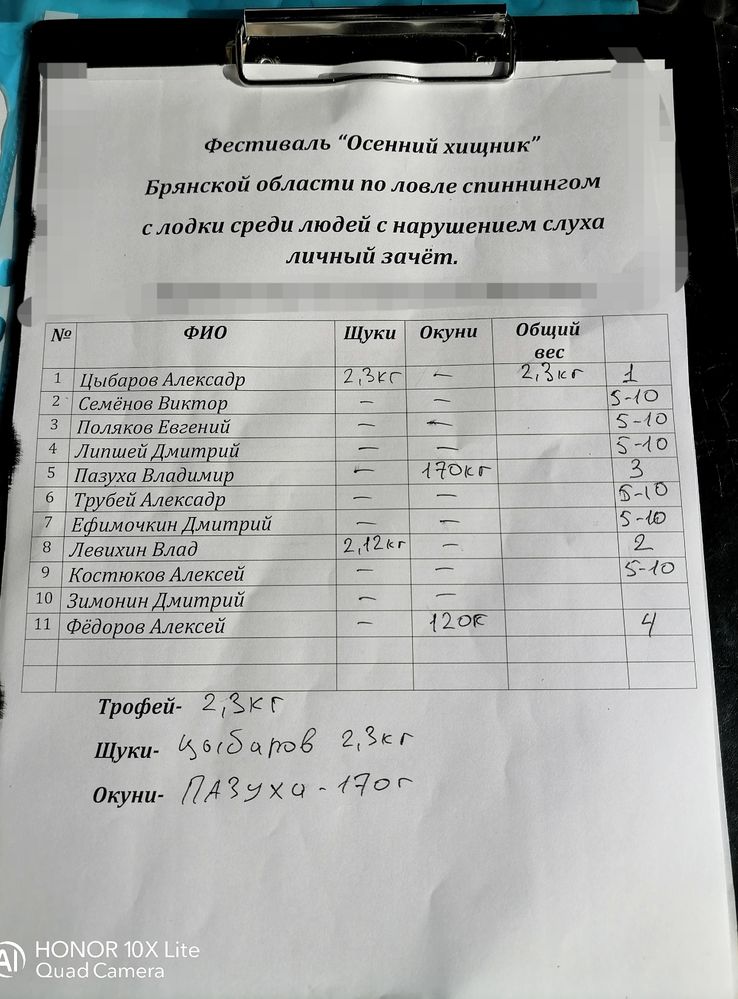 Фестиваль "Осенний хищник"
Брянской области по ловле спиннингом
с лодки среди людей с нарушением слуха
личный зачёт.
№ ФИО Щуки Окуни Общий вес
1 Цыбаров Алексадр 2,3кг — 2,3кг 1
2 Семёнов Виктор — — 5-10
3 Поляков Евгений — — 5-10
4 Липшей Дмитрий — — 5-10
5 Пазуха Владимир — 170кг 3
6 Трубей Алексадр — — 5-10
7 Ефимочкин Дмитрий — — 5-10
8 Левихин Влад 2,12кг — 2
9 Костюков Алексей — — 5-10
10 Зимонин Дмитрий — —
11 Фёдоров Алексей — 120к 4
Трофей- 2,3кг
Щуки- Цыбаров 2,3кг
Окуни- ПАЗУХА - 170г
AI HONOR 10X Lite
Quad Camera